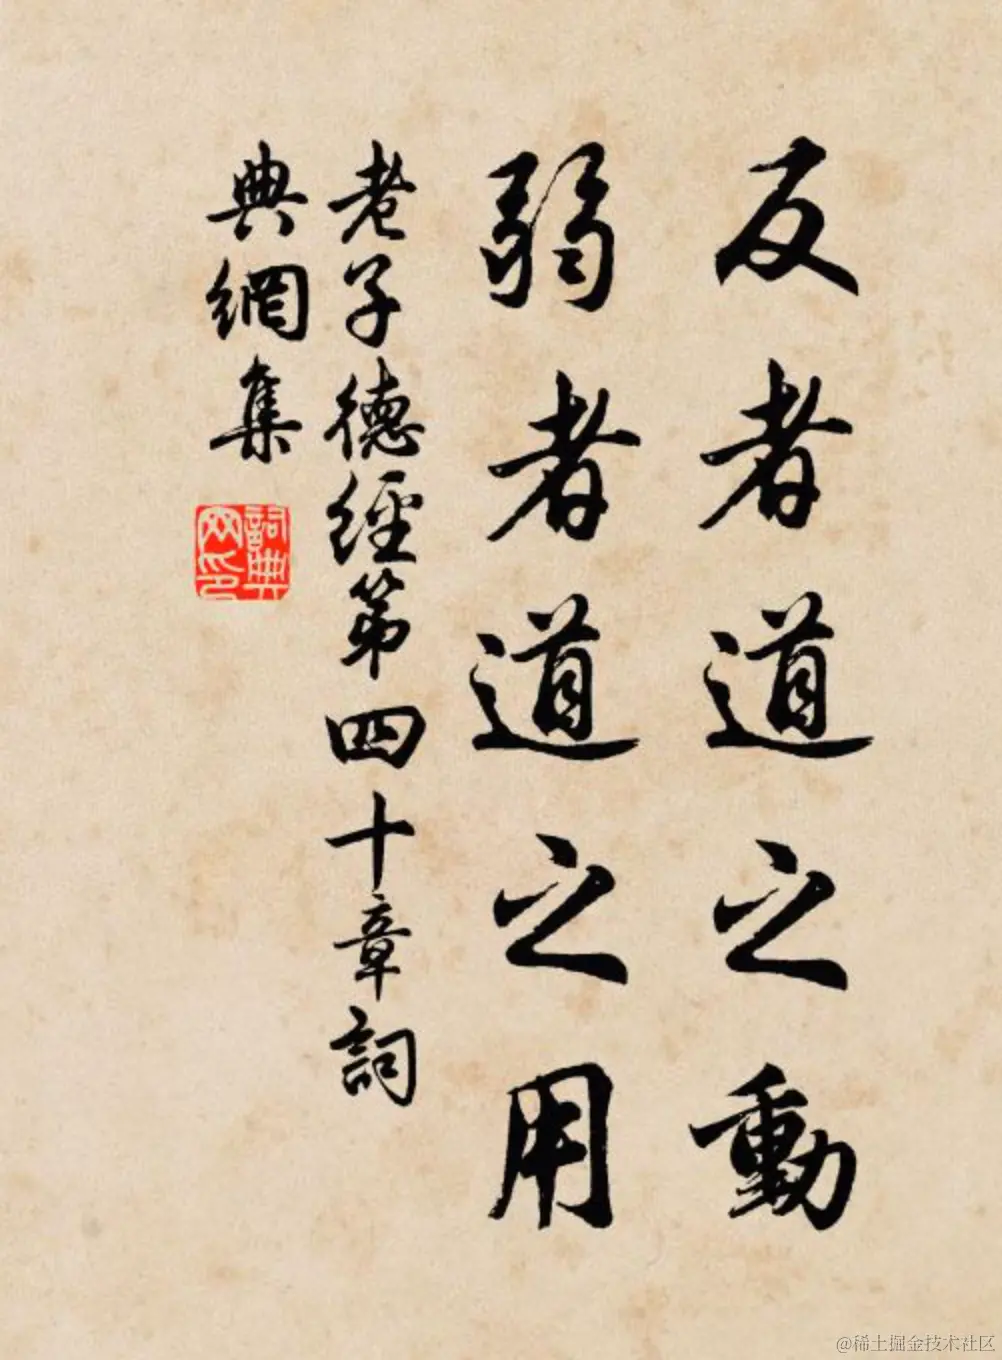 反者道之動
弱者道之用
老子德經第四十章詞
典網集
詞典
网印
@稀土掘金技术社区